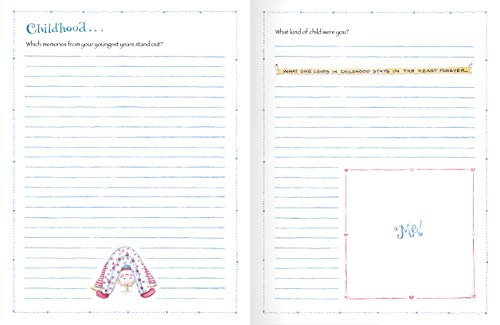 Childhood...
Which memories from your youngest years stand out?
What kind of child were you?
WHAT ONE LOVES IN CHILDHOOD STAYS IN THE HEART FOREVER.
Me!